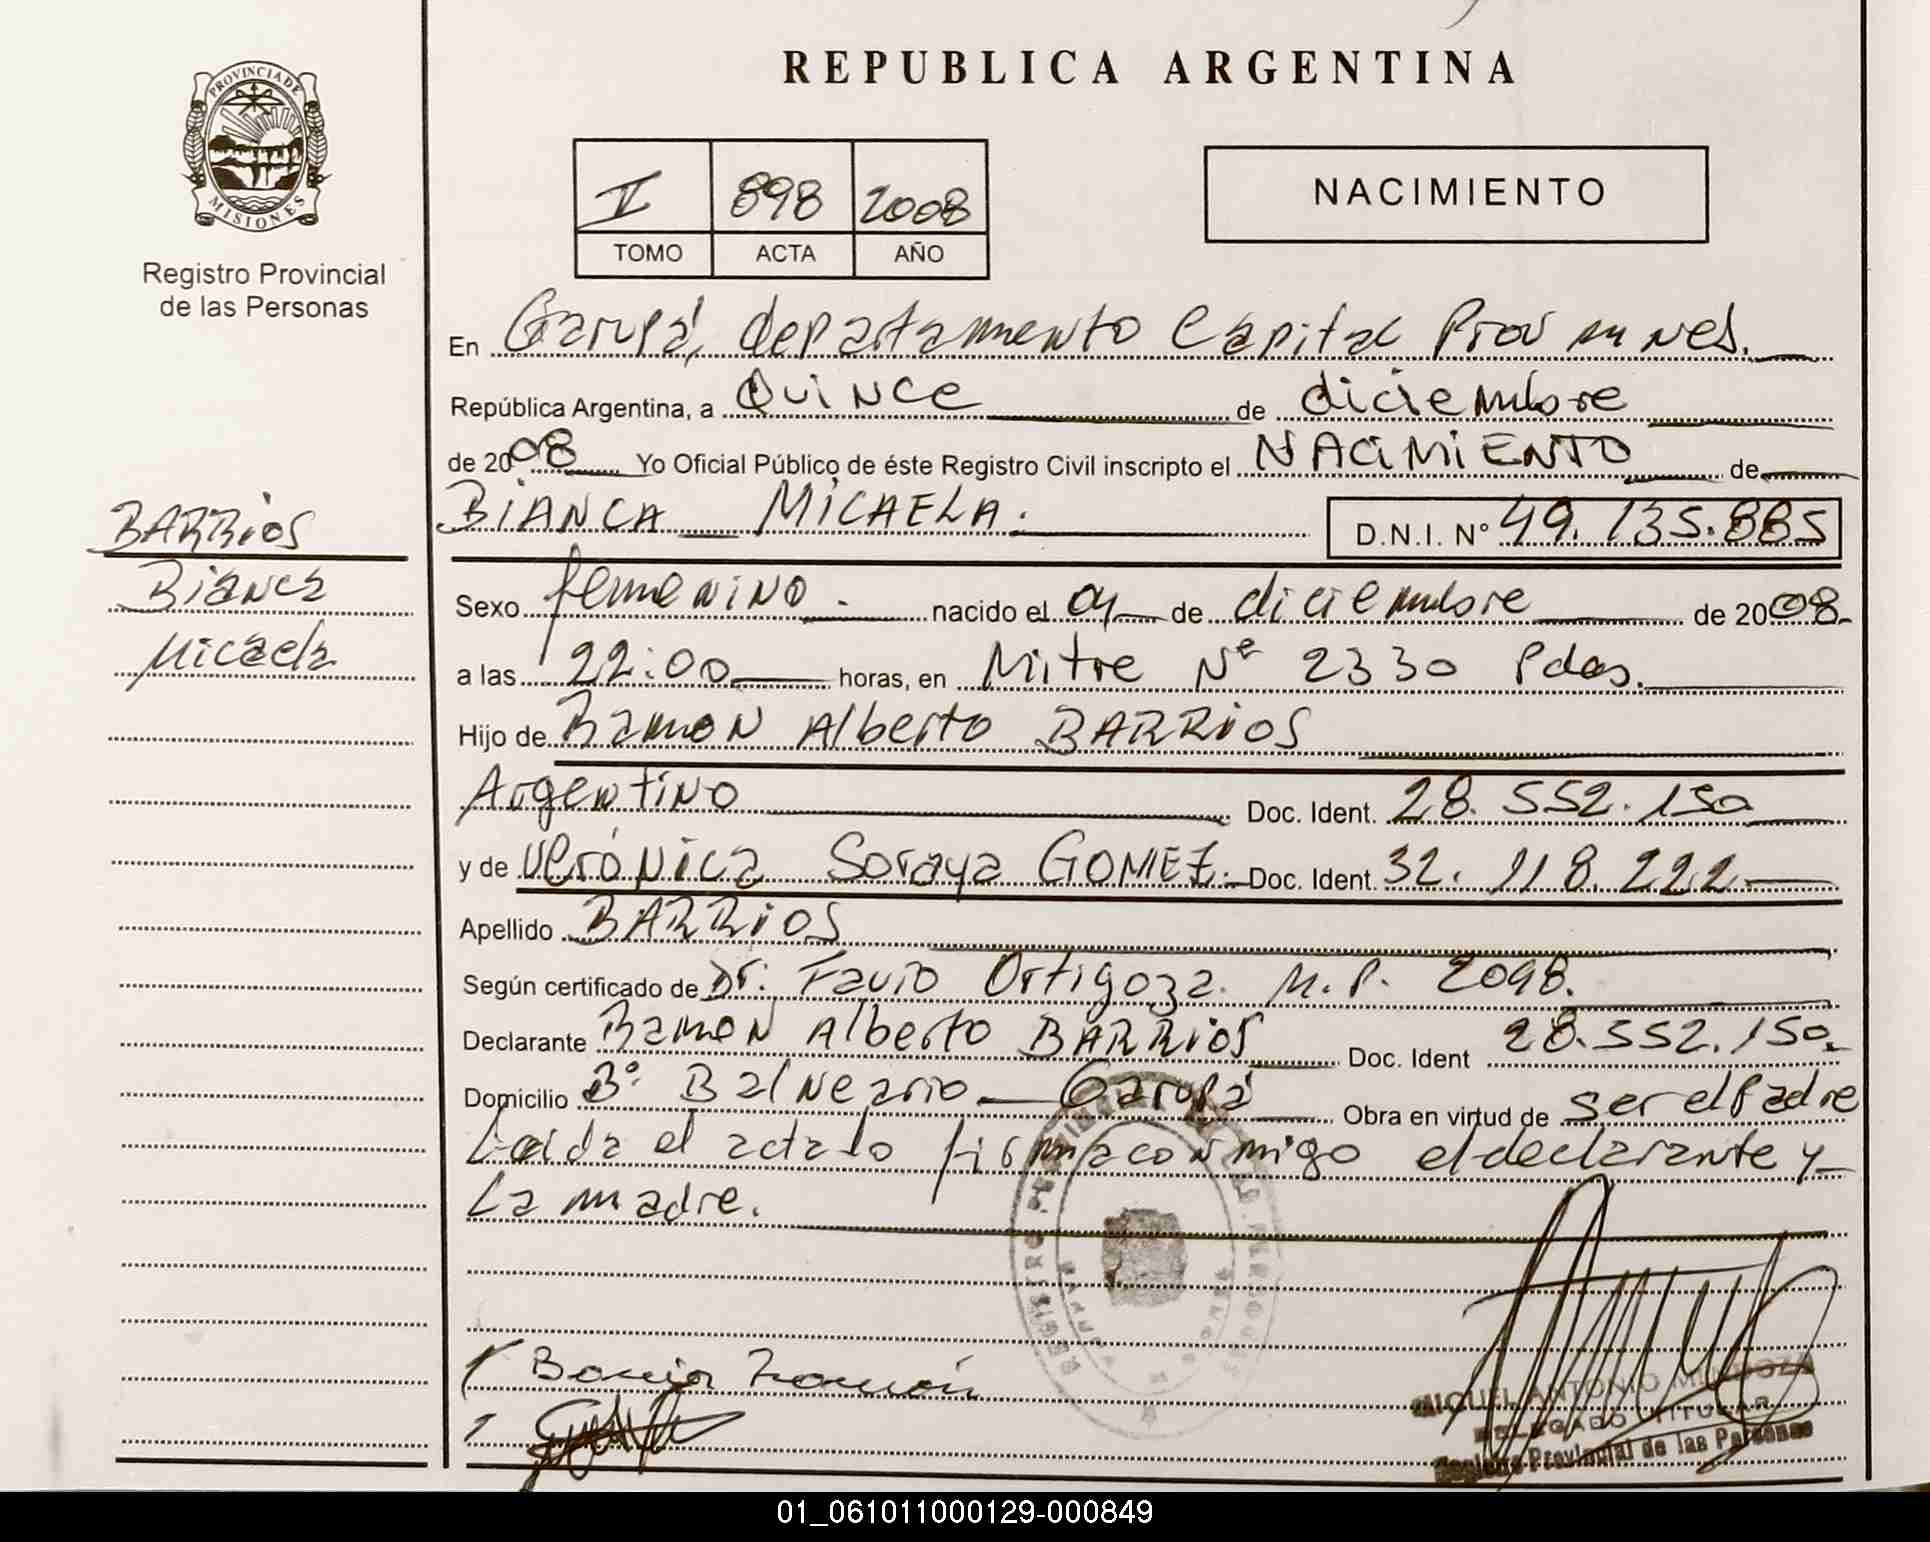 REPUBLICA ARGENTINA
PROVINCIA DE MISIONES
Registro Provincial
de las Personas
V 898 2008
TOMO ACTA AÑO
NACIMIENTO
En Garupá, departamento Capital Prov mnes.
República Argentina, a Quince de diciembre
de 2008 Yo Oficial Público de éste Registro Civil inscripto el NACIMIENTO de
BIANCA MICAELA. D.N.I. Nº 49.135.885
BARRIOS
Bianca
Micaela
Sexo femenino. nacido el 04 de diciembre de 2008.
a las 22:00 horas, en Mitre Nº 2330 Pdas.
Hijo de Ramon Alberto BARRIOS
Argentino Doc. Ident. 28.552.150
y de Verónica Soraya GOMEZ. Doc. Ident. 32.118.222
Apellido BARRIOS
Según certificado de Dr. Favio Ortigoza. M.P. 2098.
Declarante Ramon Alberto BARRIOS Doc. Ident 28.552.150.
Domicilio Bº Balneario Garupá Obra en virtud de ser el Padre
Leida el acta lo firma conmigo el declarante y
La madre.
Barrios Ramón
MIGUEL ANTONIO MENDOZA
DELEGADO TITULAR
Registro Provincial de las Personas
01_061011000129-000849